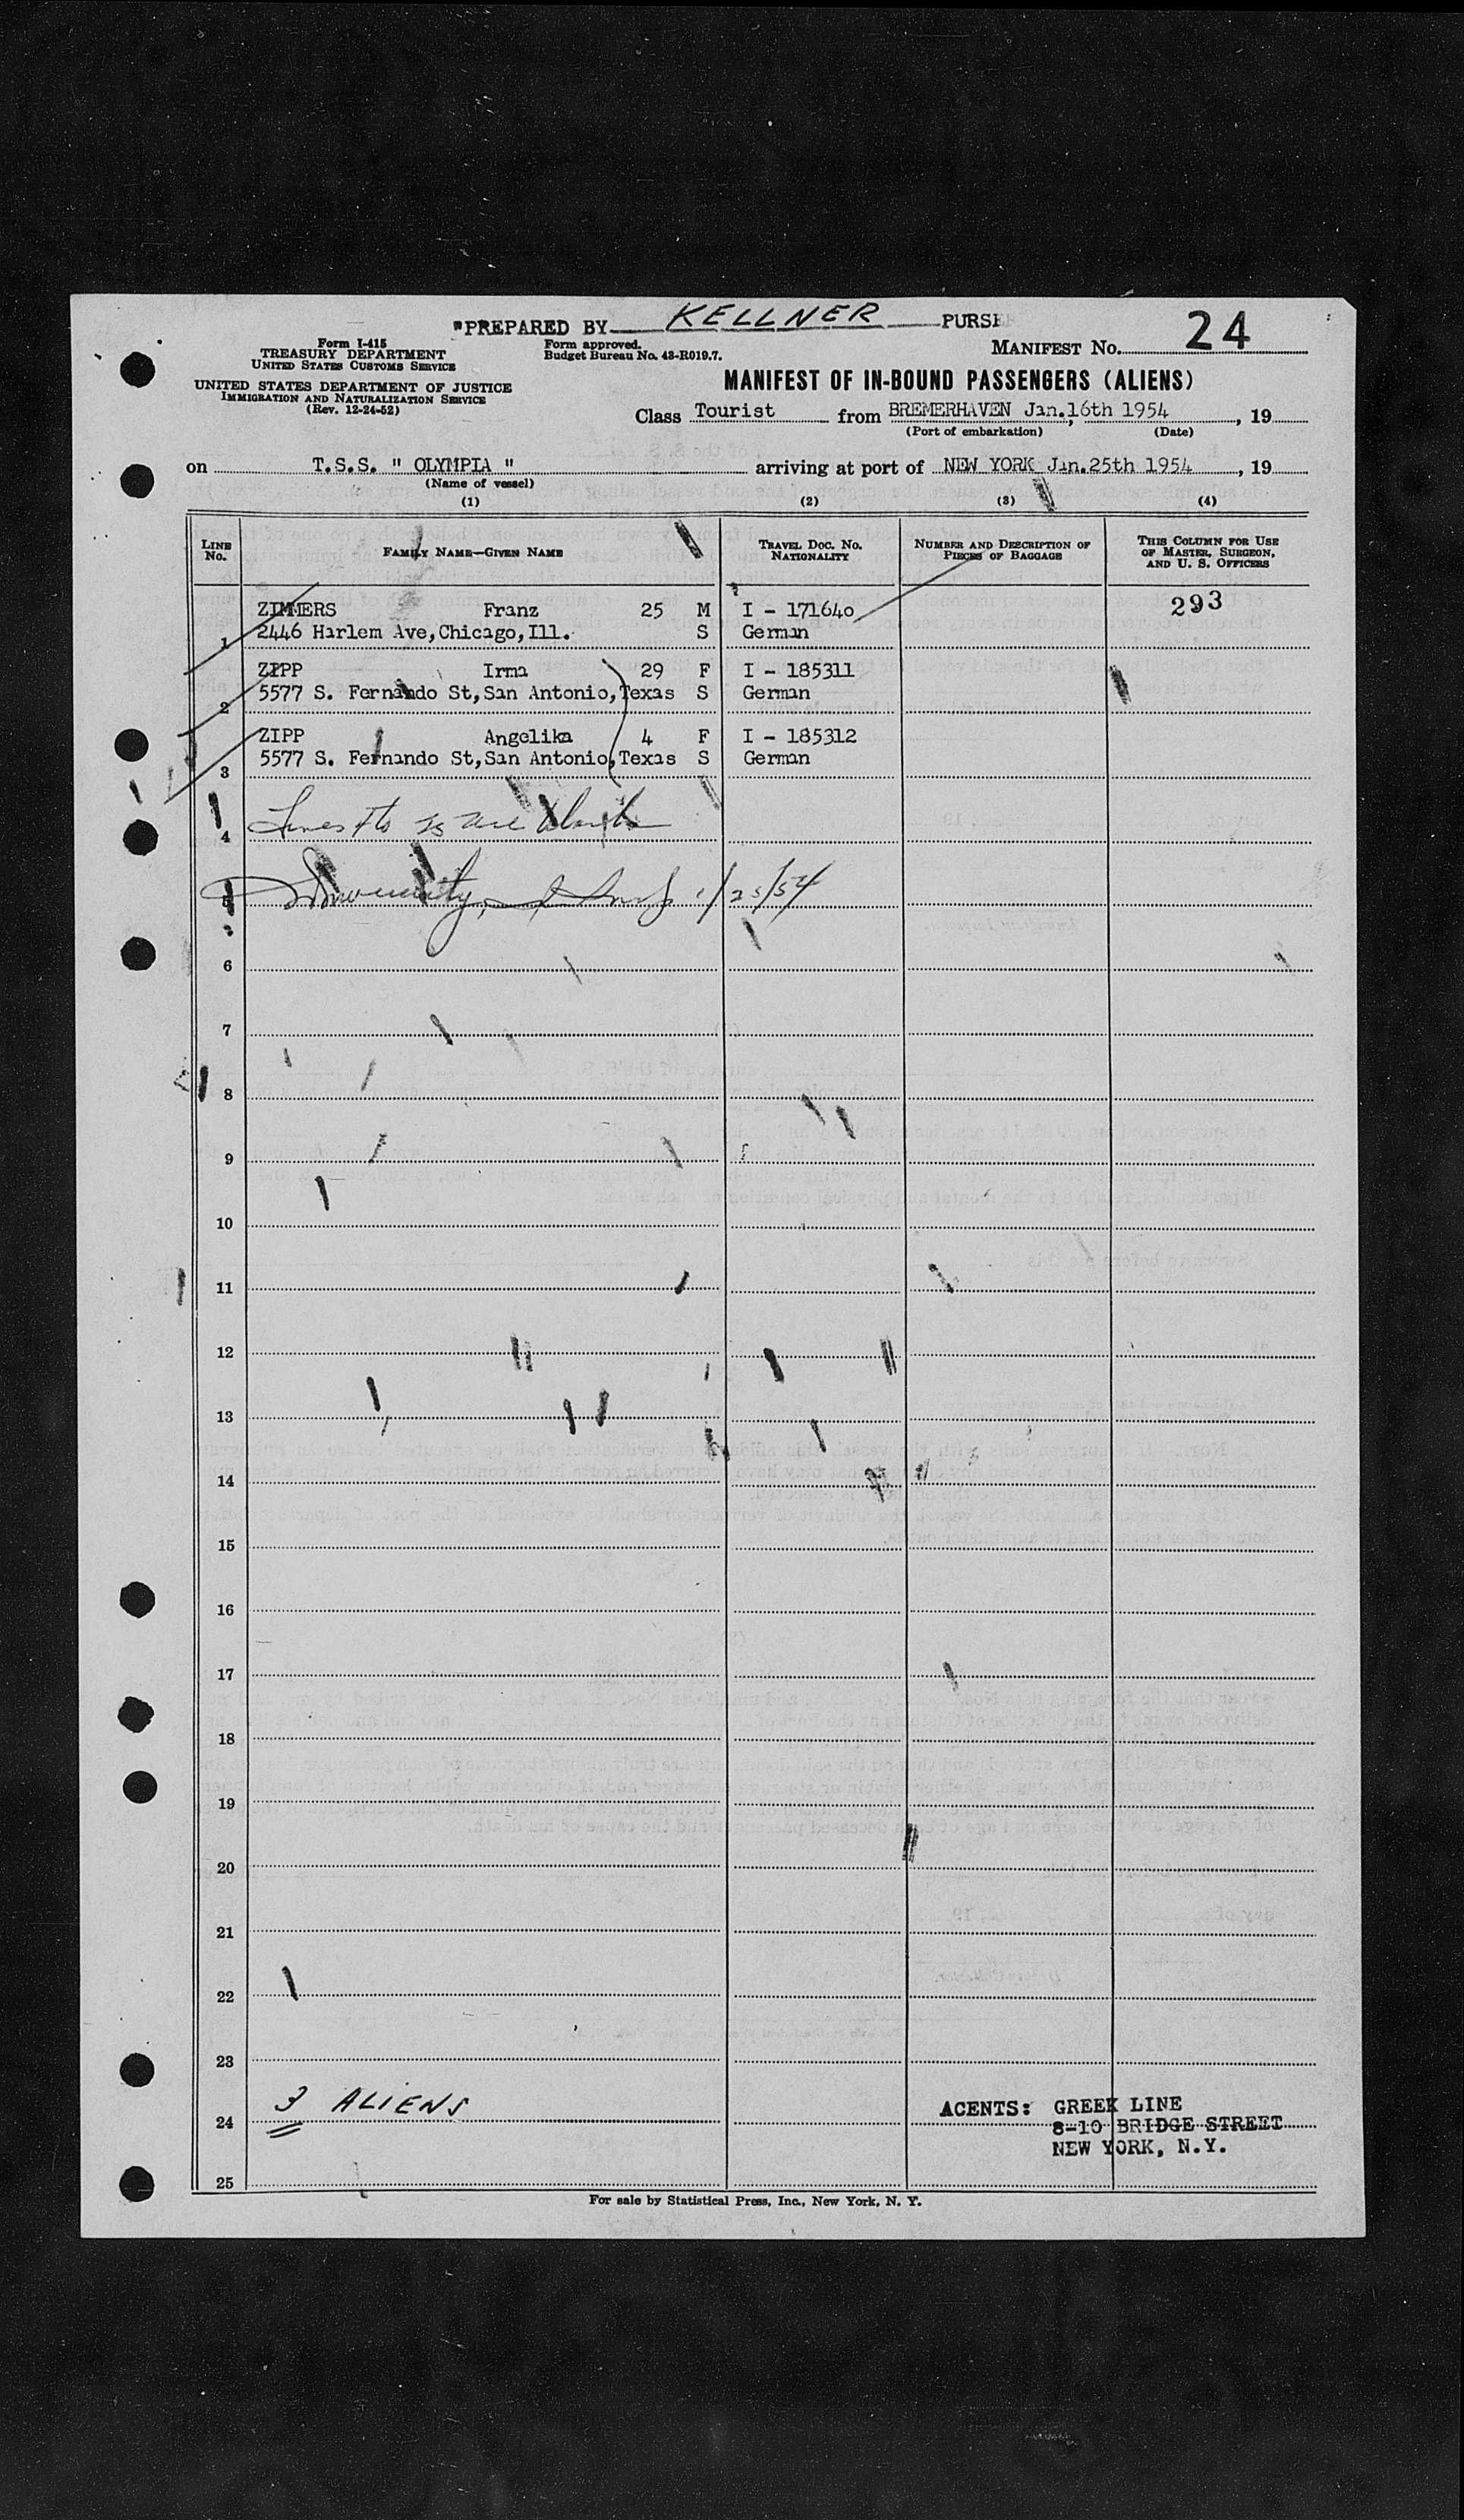 "PREPARED BY KELLNER PURSE
24
Form I-415
TREASURY DEPARTMENT
UNITED STATES CUSTOMS SERVICE
Form approved.
Budget Bureau No. 43-R019.7.
MANIFEST NO.
UNITED STATES DEPARTMENT OF JUSTICE
IMMIGRATION AND NATURALIZATION SERVICE
(Rev. 12-24-52)
MANIFEST OF IN-BOUND PASSENGERS (ALIENS)
Class Tourist from BREMERHAVEN Jan.16th 1954, 19
(Port of embarkation) (Date)
on T.S.S. " OLYMPIA " arriving at port of NEW YORK Jan.25th 1954, 19
(Name of vessel)
(1) (2) (3) (4)
LINE NO. FAMILY NAME—GIVEN NAME TRAVEL DOC. NO. NATIONALITY NUMBER AND DESCRIPTION OF PIECES OF BAGGAGE THIS COLUMN FOR USE OF MASTER, SURGEON, AND U. S. OFFICERS
ZIMMERS Franz 25 M I - 171640 293
1 2446 Harlem Ave,Chicago,Ill. S German
ZIPP Irma 29 F I - 185311
2 5577 S. Fernando St,San Antonio,Texas S German
ZIPP Angelika 4 F I - 185312
3 5577 S. Fernando St,San Antonio,Texas S German
4 Lines are blank
5 1/25/54
6
7
8
9
10
11
12
13
14
15
16
17
18
19
20
21
22
23
24 3 ALIENS
AGENTS: GREEK LINE
8-10 BRIDGE STREET
NEW YORK, N.Y.
25
For sale by Statistical Press, Inc., New York, N. Y.